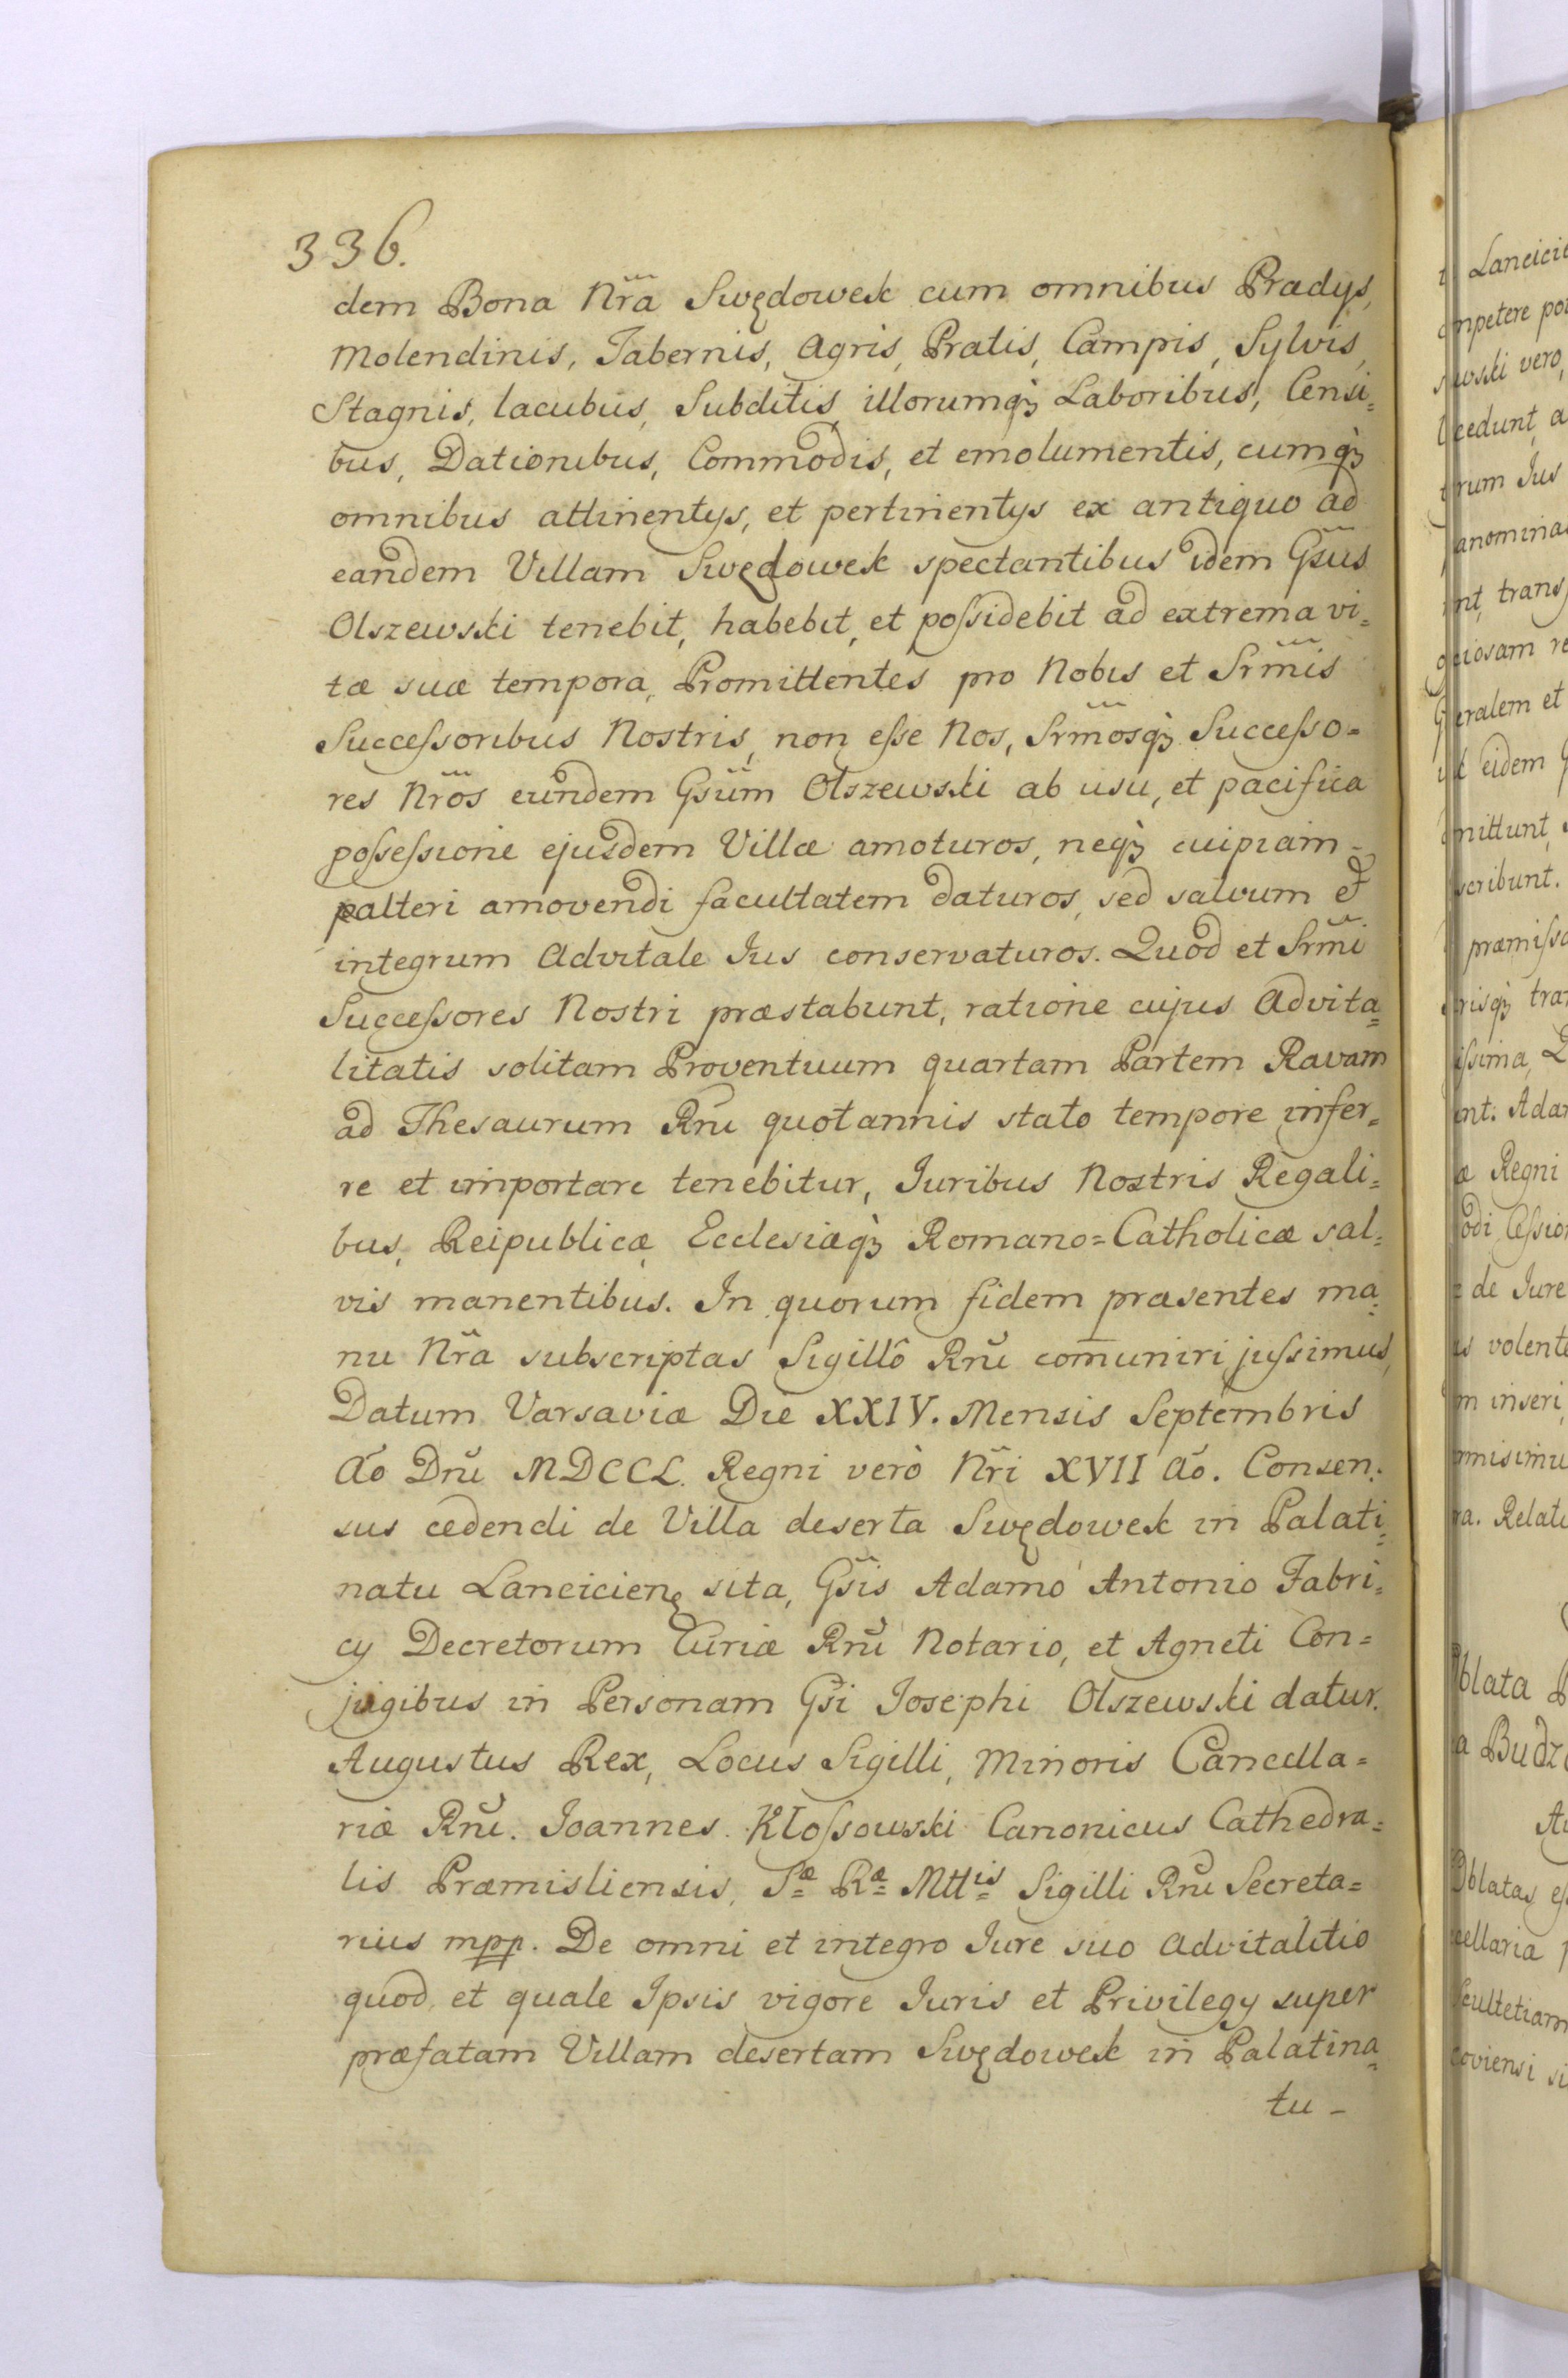 336.
dem Bona Nr̃a Swędowek cum omnibus Prædys,
Molendinis, Tabernis, Agris, Pratis, Campis, Sylvis,
Stagnis, lacubus, Subditis, illorumq̀ꝫ Laboribus, Censi=
bus, Dationibus, Commodis, et emolumentis, cumq̀ꝫ
omnibus attinentys, et pertinentys ex antiquo ad
eandem Villam Swędowek spectantibus idem Gs̃us
Olszewski tenebit, habebit, et poſsidebit ad extrema vi=
tæ suæ tempora, Promittentes pro Nobis et Srm̃is
Succeſsoribus Nostris, non eſse Nos, Srm̃osq̀ꝫ Succeſso=
res Nr̃os eundem Gsũm Olszewski ab usu, et pacifica
poſseſsione ejusdem Villæ amoturos, neq̀ꝫ cuipiam-
palteri amovendi facultatem daturos, sed salvum et
integrum Advitale Jus conservaturos. Quod et Srm̃i
Succeſsores Nostri præstabunt, ratione cujus Advita=
litatis solitam Proventuum quartam Partem Ravam
ad Thesaurum Rñi quotannis stato tempore infer=
re et importare tenebitur, Juribus Nostris Regali=
bus, Reipublicæ, Ecclesiæq̀ꝫ Romano=Catholicæ sal=
vis manentibus. In quorum fidem præsentes ma=
nu Nr̃a subscriptas Sigillô Rñi com̄uniri juſsimus,
Datum Varsaviæ Die XXIV. Mensis Septembris
Aõ Dñi MDCCL. Regni verò Nr̃i XVII Aõ. Consen=
sus cedendi de Villa deserta Swędowek in Palati=
natu Lancicienę sita, Gs̃is Adamo Antonio Fabri=
cy Decretorum Curiæ Rñi Notario, et Agneti Con=
jugibus in Personam Gs̃i Josephi Olszewski datur.
Augustus Rex, Locus Sigilli, Minoris Cancella=
riæ Rñi. Joannes Kłoſsowski Canonicus Cathedra=
lis Præmisliensis, Sæ Ræ Mttis Sigilli Rñi Secreta=
rius mpp. De omni et integro Jure suo Advitalitio
quod et quale Ipsis vigore Juris et Privilegy super
præfatam Villam desertam Swędowek in Palatina=
tu -
Lancicie
mpetere po
wski vero,
cedunt, a
rum Jus
trans
iosam re
eralem et
eidem
mittunt,
scribunt.
præmiſsa
iſsima,
nt. Ada
Regni
Ceſsio
de Jure
volente
inseri
misimu
Relat
Oblata
Budz
Oblatas
cellaria
Scultetiam
coviensi si